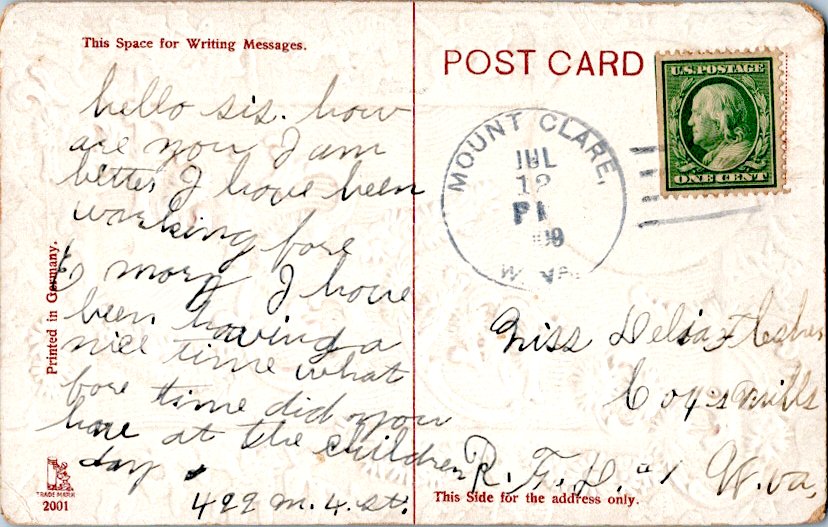 This Space for Writing Messages.
POST CARD
U.S. POSTAGE
ONE CENT
MOUNT CLARE,
JUL
12
W. VA.
hello sis. how
are you I am
better I have been
working fore
mary I have
been having a
nice time what
fore time did you
have at the children
day.
499 m. 4. st.
Printed in Germany.
TRADE MARK
2001
Miss Delia Flesher
Coys mills
R. F. D. #1 W. va.
This Side for the address only.